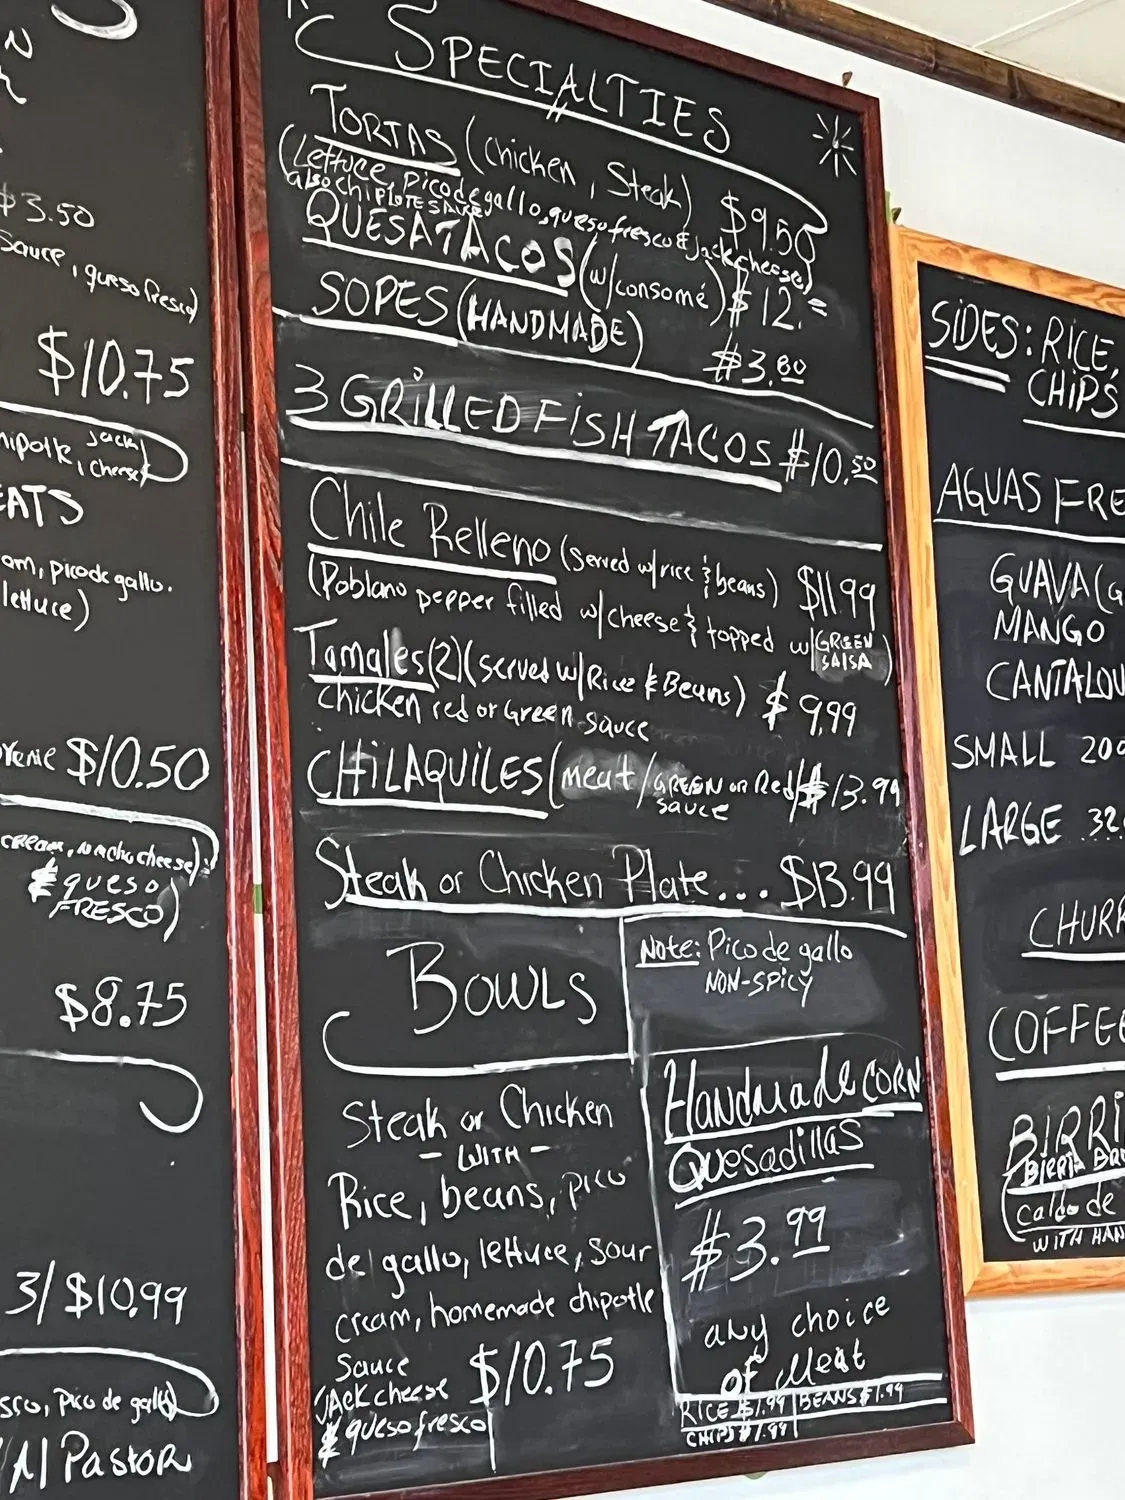 $3.50
Sauce, queso fresco)
$10.75
jack
cheese)
EATS
pico de gallo.
lettuce)
$10.50
cream, nacho cheese)
& queso
FRESCO)
$8.75
3/$10.99
pico de gallo)
Al Pastor
SPECIALTIES
TORTAS (Chicken, Steak) $9.50
(Lettuce, Pico de gallo, queso fresco & jack cheese)
also chiPLOTE SAUCE
QUESATACOS (w/consomé) $12.=
SOPES (HANDMADE) $3.80
3 GRiLLED FiSH TACOS $10.50
Chile Relleno (served w/rice & beans) $11.99
(Poblano pepper filled w/cheese & topped w/GREEN SALSA)
Tamales (2) (served w/Rice & Beans) $9.99
chicken red or Green sauce
CHiLAQUiLES (meat/GREEN or Red $13.99
sauce
Steak or Chicken Plate... $13.99
BOWLS
Steak or Chicken
- WITH -
Rice, beans, pico
de gallo, lettuce, sour
cream, homemade chipotle
Sauce $10.75
JACK cheese
& queso fresco
Note: Pico de gallo
NON-SPICY
Handmade CORN
Quesadillas
$3.99
any choice
of Meat
RICE $1.99 BEANS $1.99
CHIPS $1.99
SiDES: RiCE,
CHiPS
AGUAS FRE
GUAVA
MANGO
CANTALOU
SMALL 20
LARGE 32
CHURR
COFFEE
BIRRI
caldo de
WITH HAN